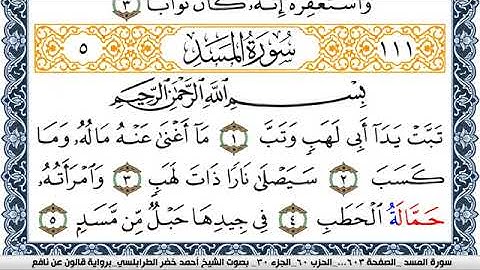 وَاسْتَغْفِرْهُ إِنَّهُ, كَانَ تَوَّابًا ٣
١١١ سُورَةُ الْمَسَدِ ٥
بِسْمِ اللَّهِ الرَّحْمَٰنِ الرَّحِيمِ
تَبَّتْ يَدَا أَبِي لَهَبٍ وَتَبَّ ١ مَا أَغْنَىٰ عَنْهُ مَالُهُ, وَمَا
كَسَبَ ٢ سَيَصْلَىٰ نَارًا ذَاتَ لَهَبٍ ٣ وَامْرَأَتُهُ,
حَمَّالَةُ الْحَطَبِ ٤ فِي جِيدِهَا حَبْلٌ مِّن مَّسَدٍ ٥
سورة المسد _الصفحة ٦٠٣..._الحزب ٦٠_الجزء ٣٠_ بصوت الشيخ أحمد خضر الطرابلسي _برواية قالون عن نافع